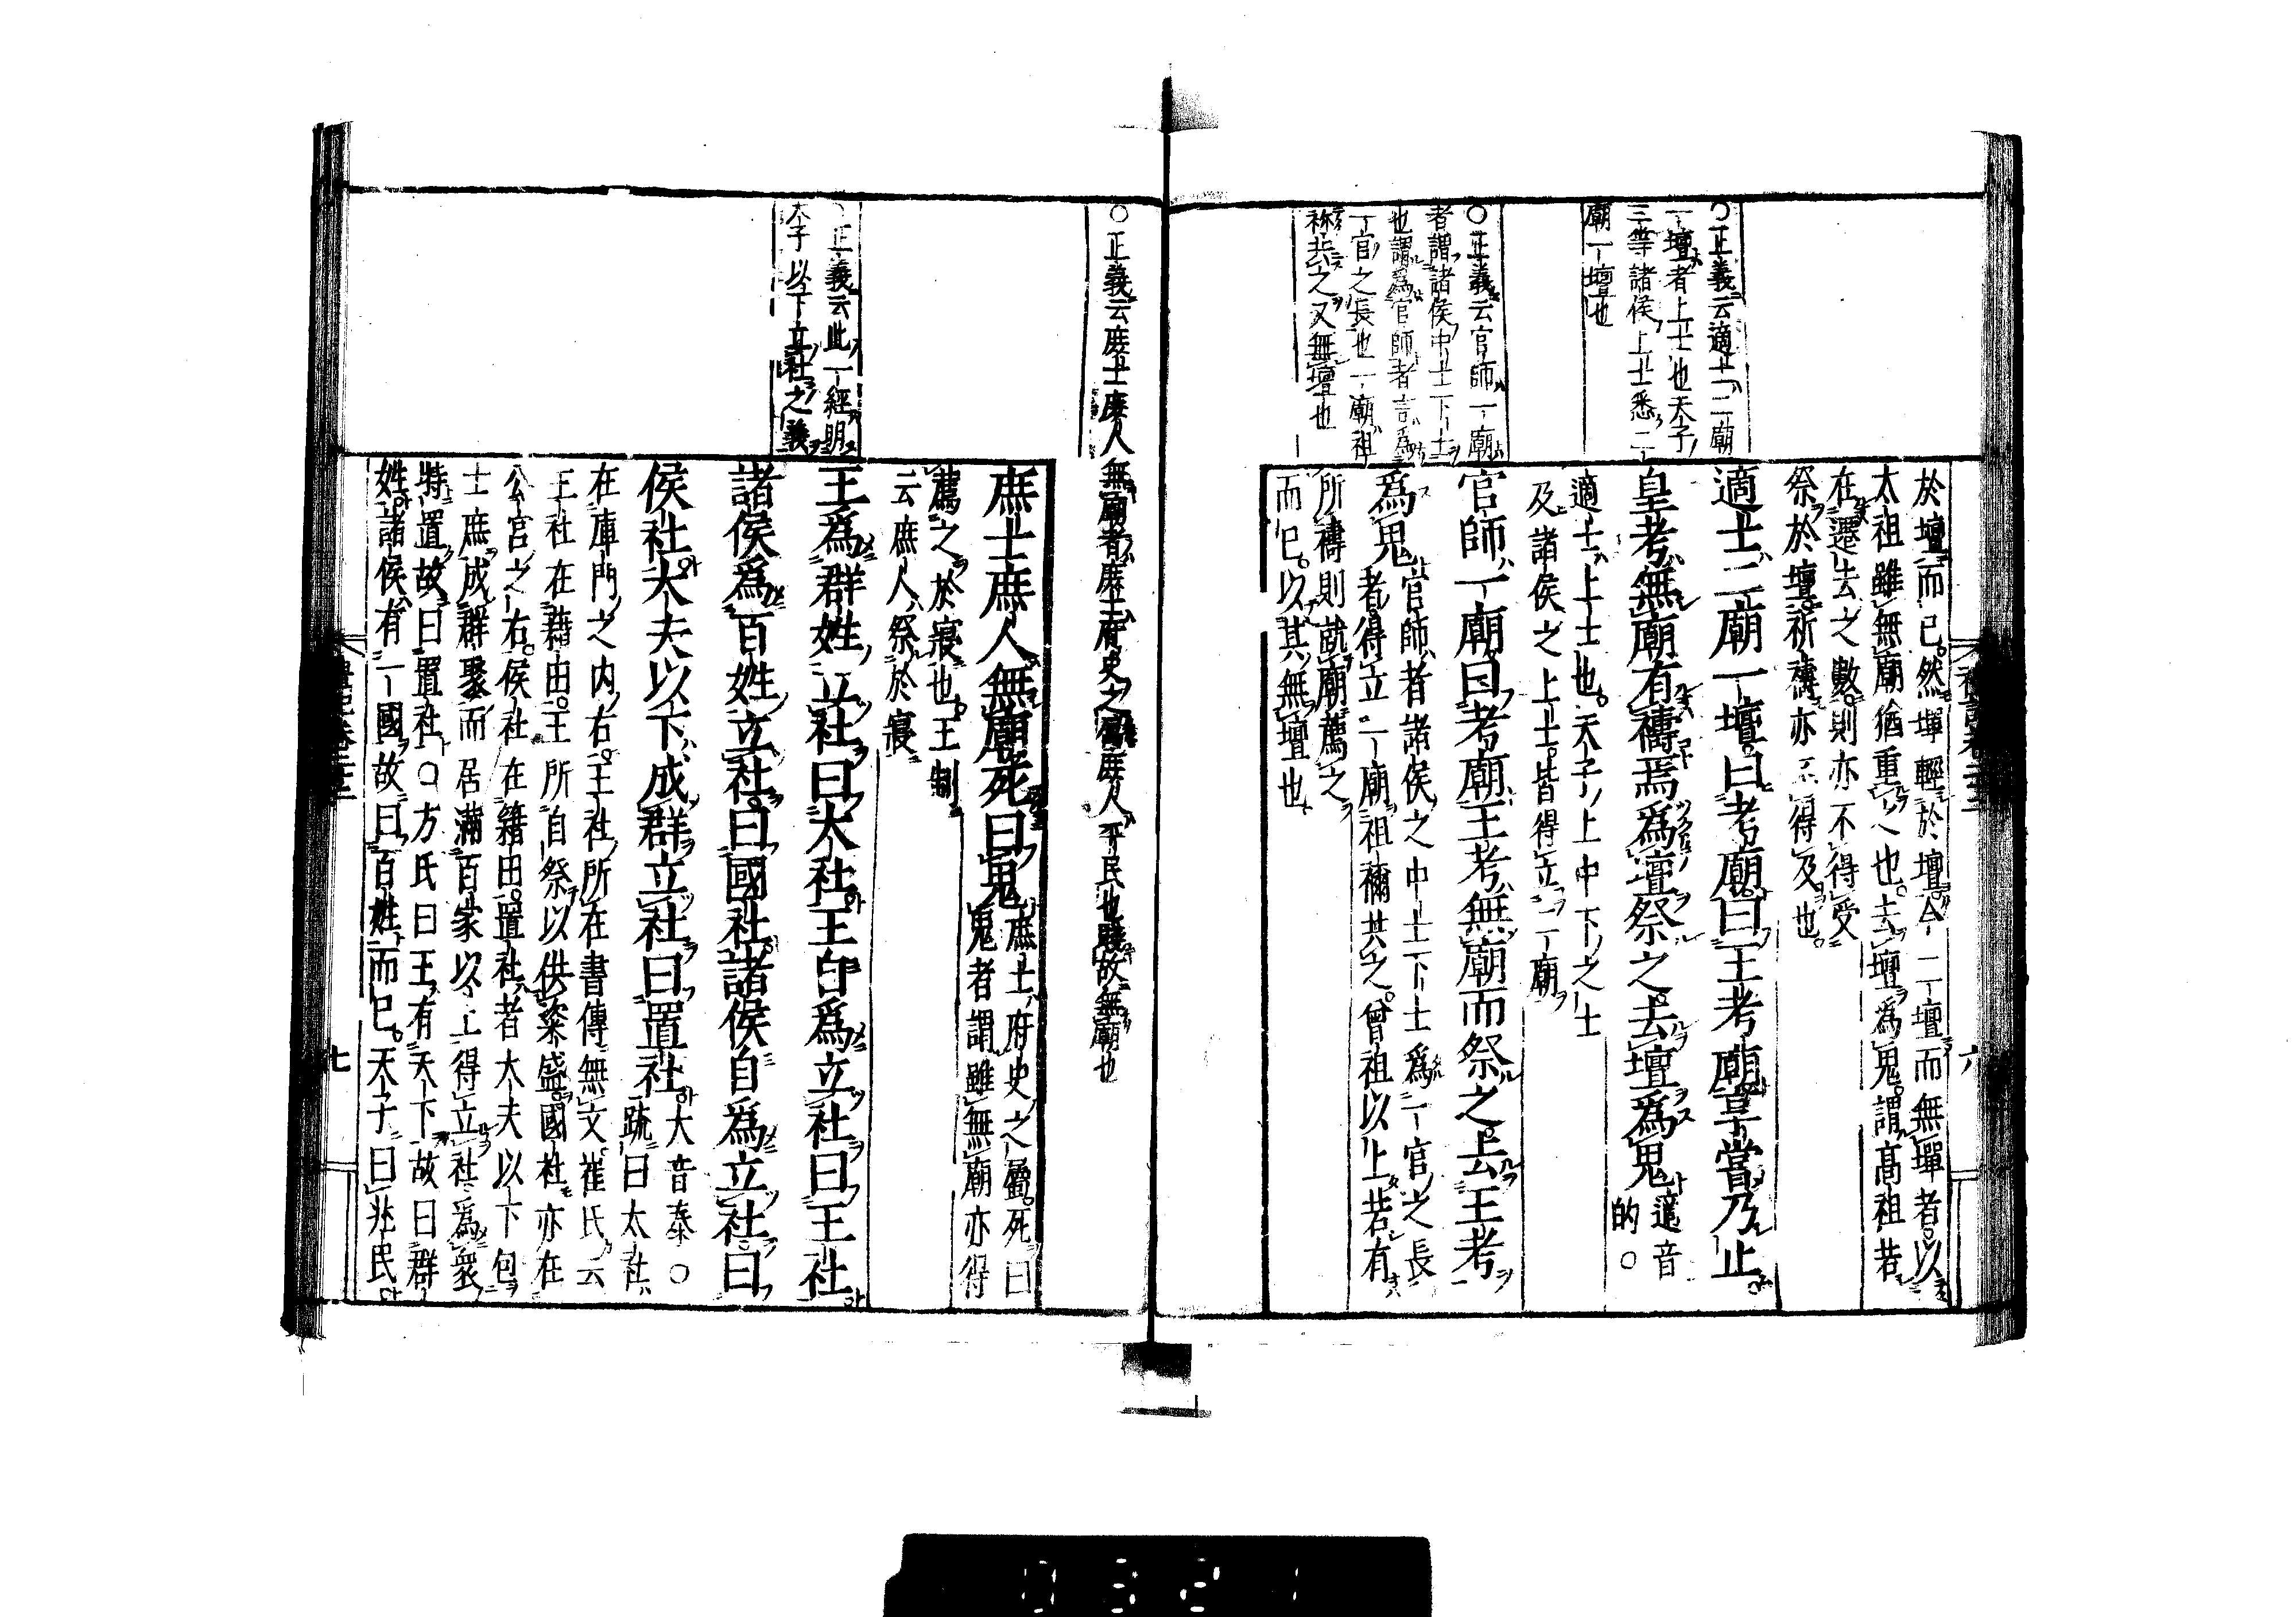 於壇而已然墠輕於壇今二壇而無墠者以
太祖雖無廟猶重之也去壇爲鬼謂高祖若
在遷去之數則亦不得受
祭於壇祈禱亦不得及也
適士二廟一壇曰考廟曰王考廟享嘗乃止
皇考無廟有禱焉爲壇祭之去壇爲鬼適音
的○
適士上士也天子上中下之士
及諸侯之上士皆得立二廟
官師一廟曰考廟王考無廟而祭之去王考
爲鬼官師者諸侯之中士下士爲一官之長
者得立一廟祖禰共之曾祖以上若有
所禱則就廟薦之
而已以其無壇也
○正義云適士二廟
一壇者上士也天子
三等諸侯上士悉二
廟一壇也
○正義云官師一廟
者謂諸侯中士下士
也謂爲官師者言爲
一官之長也一廟祖
祢共之又無壇也
六
○正義云庶士庶人無廟者庶士府史之屬庶人平民也賤故無廟也
庶士庶人無廟死曰鬼庶士府史之屬死曰
鬼者謂雖無廟亦得
薦之於寢也王制
云庶人祭於寢
王爲群姓立社曰大社王自爲立社曰王社
諸侯爲百姓立社曰國社諸侯自爲立社曰
侯社大夫以下成群立社曰置社大音泰○
疏曰太社
在庫門之内右王社所在書傳無文崔氏云
王社在藉田王所自祭以供粢盛國社亦在
公宮之右侯社在籍田置社者大夫以下包
士庶成群聚而居滿百家以上得立社爲衆
特置故曰置社○方氏曰王有天下故曰群
姓諸侯有一國故曰百姓而已天子曰兆民
○正義云此一經明
天子以下立社之義
七